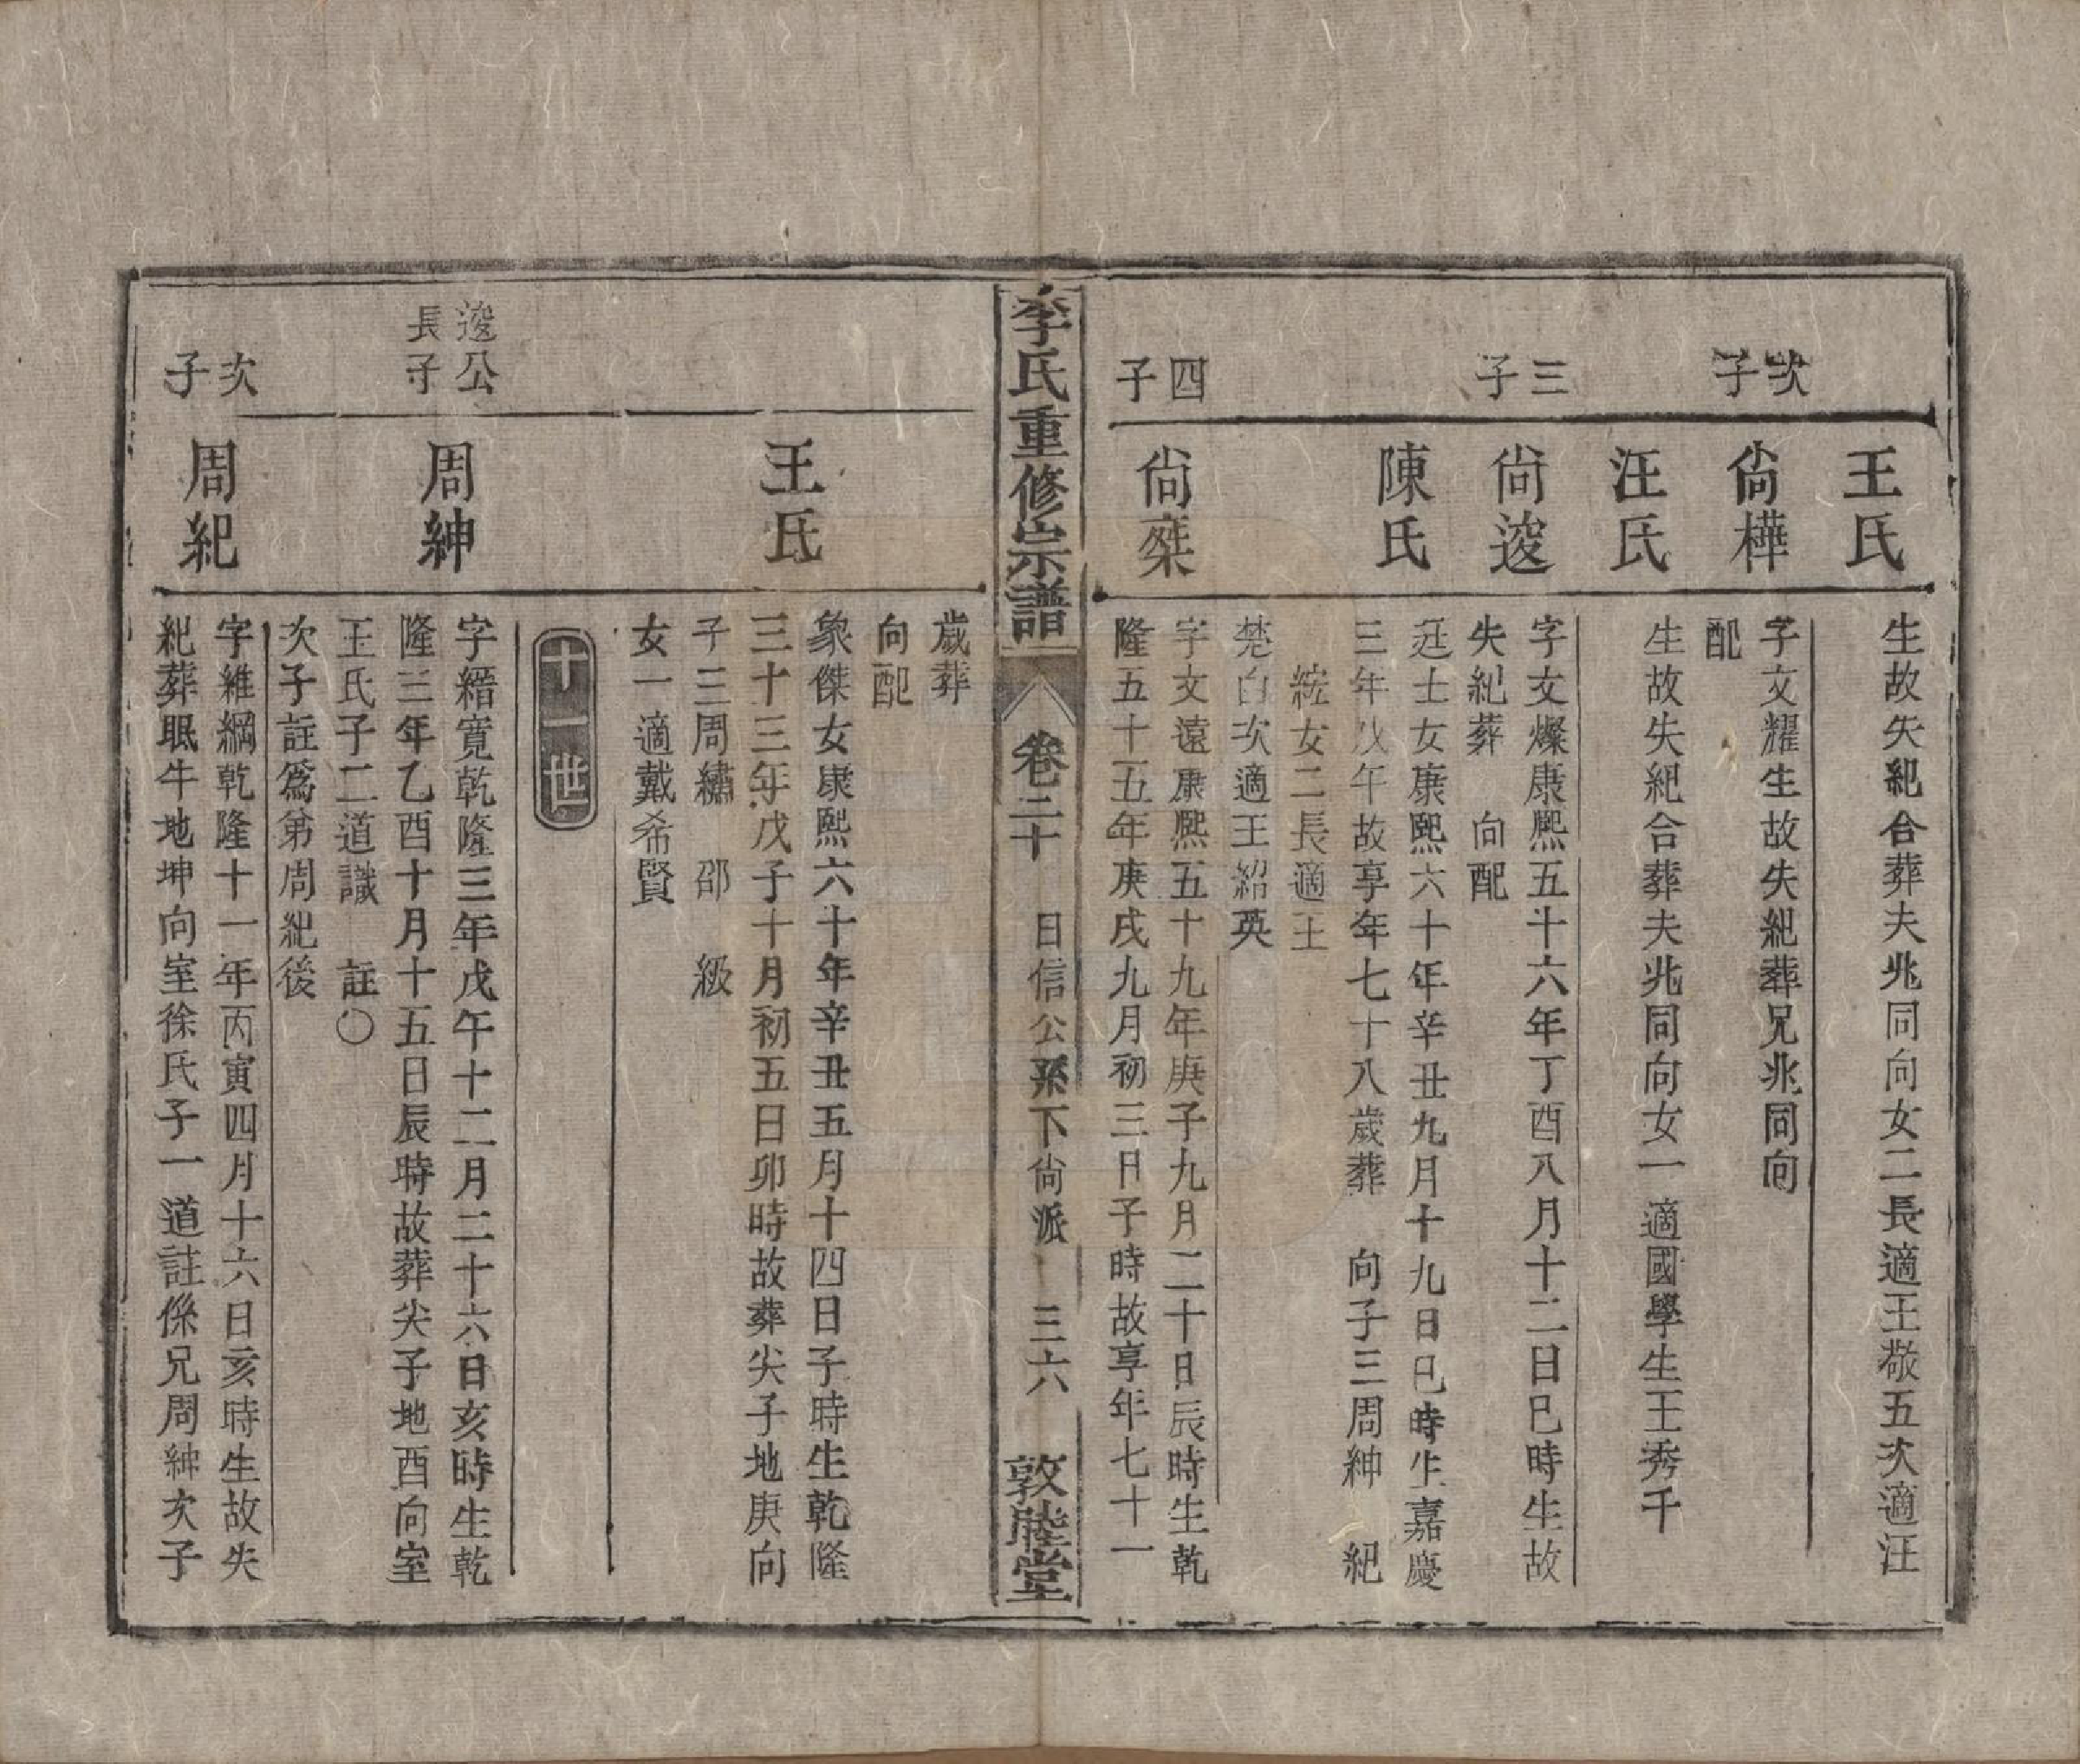 王氏
生故失紀合葬夫兆同向女二長適王敬五次適汪
次子
尙樺
子文耀生故失紀葬兄兆同向
配
汪氏
生故失紀合葬夫兆同向女一適國學生王秀千
三子
尙逡
字文燦康熙五十六年丁酉八月十二日巳時生故
失紀葬　向配
陳氏
廷士女康熙六十年辛丑九月十九日巳時生嘉慶
三年戊午故享年七十八歲葬　向子三周紳　紀
綋女二長適王
楚白次適王紹英
四子
尙桀
字文遠康熙五十九年庚子九月二十日辰時生乾
隆五十五年庚戌九月初三日子時故享年七十一
李氏重修宗譜　卷二十　日信公系下尙派　三六　敦睦堂
歲葬
向配
王氏
象傑女康熙六十年辛丑五月十四日子時生乾隆
三十三年戊子十月初五日卯時故葬尖子地庚向
子三周繡　邵　級
女一適戴希賢
十一世
逡公
長子
周紳
字縉寬乾隆三年戊午十二月二十六日亥時生乾
隆三年乙酉十月十五日辰時故葬尖子地酉向室
王氏子二道識　註〇
次子註爲弟周紀後
次子
周紀
字維綱乾隆十一年丙寅四月十六日亥時生故失
紀葬眠牛地坤向室徐氏子一道註係兄周紳次子